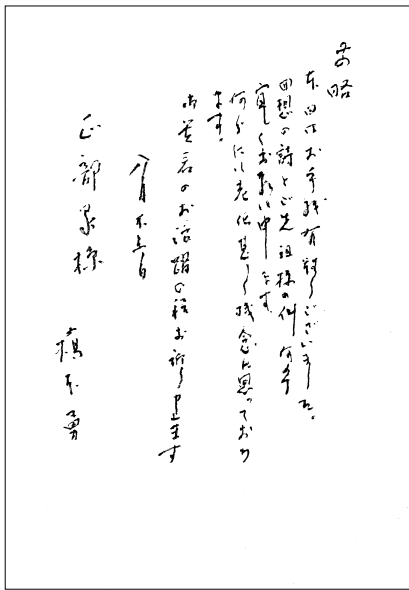 前略
本日はお手紙有難うございました。
回想の詩とご先祖様の件何卒
宜しくお願い申します
何分にも老体甚だ残念に思っており
ます。
のお活躍の程お祈り申します
八月
部 様
橋本勇